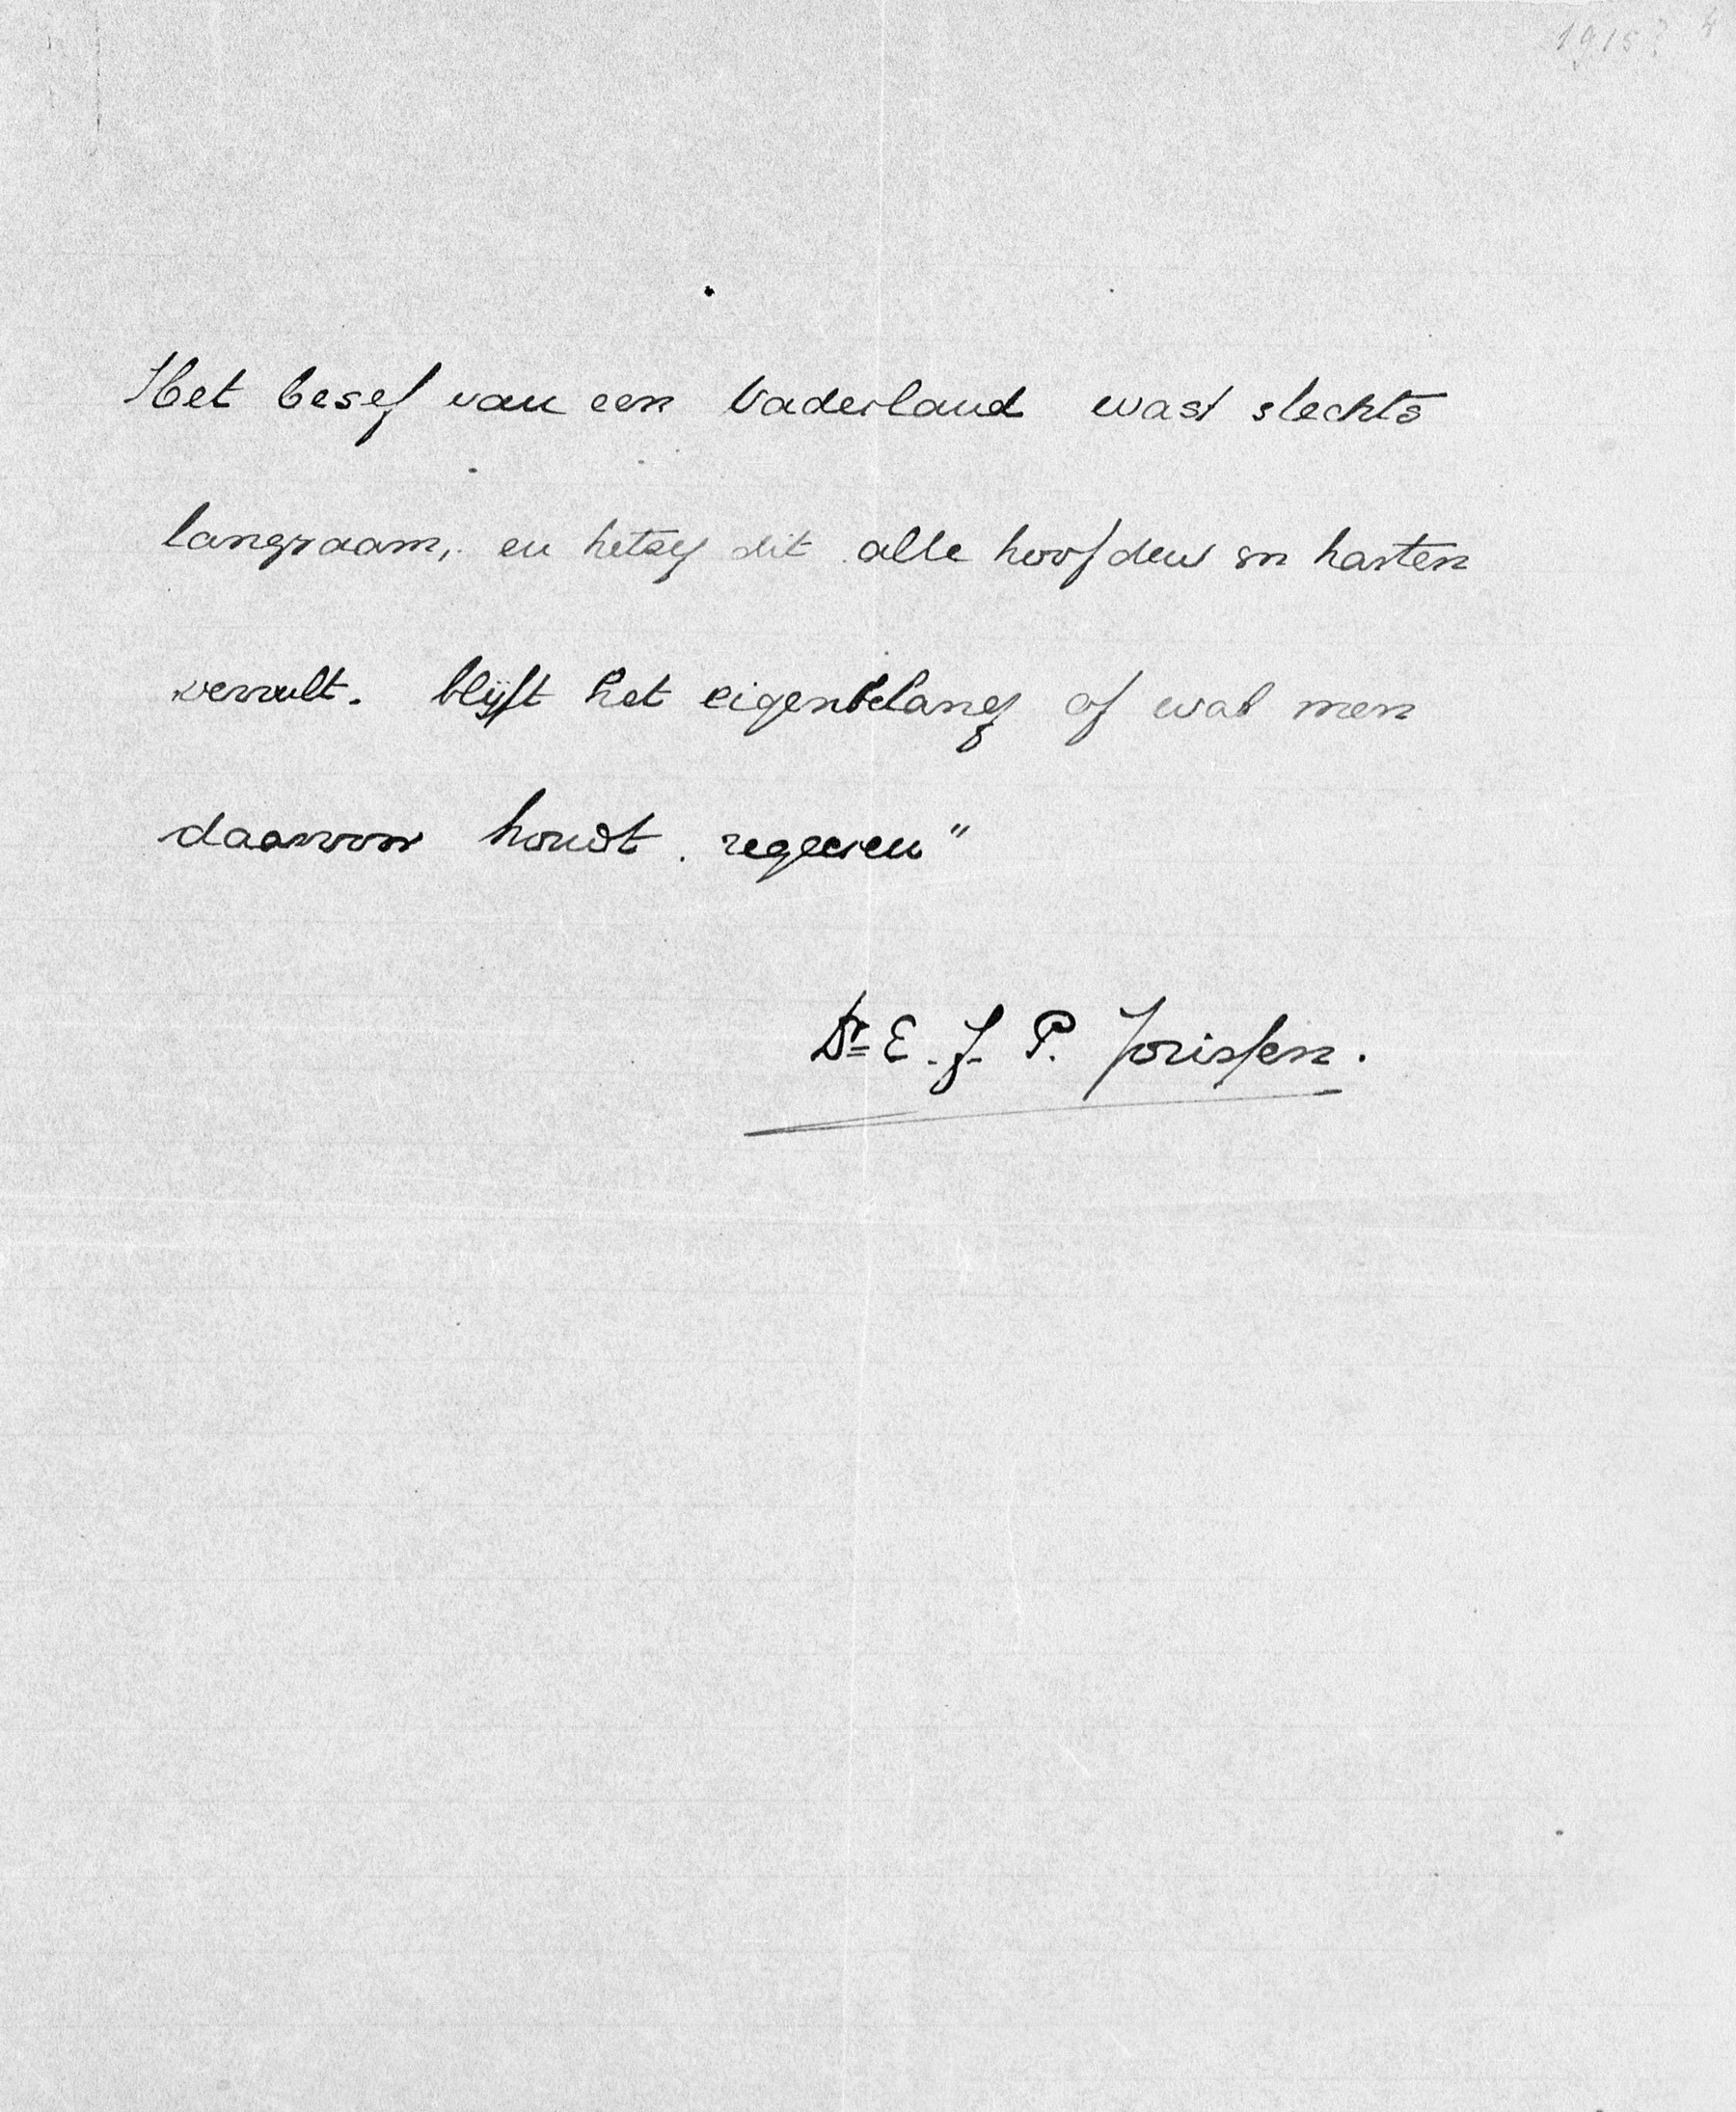 1915? 4
Het besef van een Vaderland wast slechts
langzaam, en hetzij dit alle hoofden en harten
vervult. blijft het eigenbelang of wat men
daarvoor houdt. regeeren"
Dr E. J. P. Jorissen.